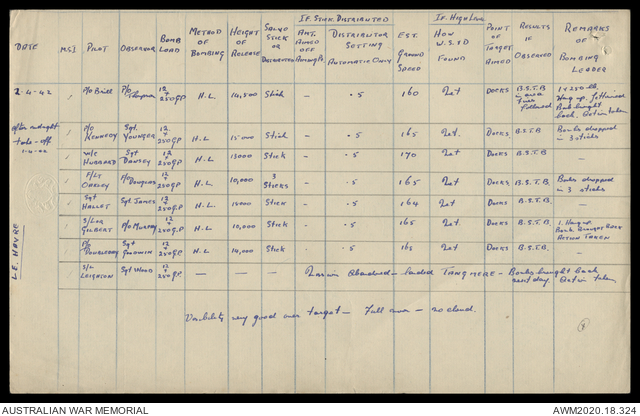 DATE MSI PILOT OBSERVER BOMB LOAD METHOD OF BOMBING HEIGHT OF RELEASE SALVO STICK OR DISTRIBUTED IF. STICK. DISTRIBUTED AMT. AIMED OFF DISTRIBUTOR SETTING AUTOMATIC ONLY EST. GROUND SPEED IF. HIGH LEVEL HOW W.S. & D FOUND POINT OF TARGET AIMED RESULTS IF OBSERVED REMARKS OF BOMBING LEADER
2-4-42 / P/O Brill P/O 12 + 250 G.P H.L. 14,500 Stick - .5 160 Zet DOCKS B.S.T.B in area followed 1 x 250 lb. Hang up. Jettisoned Bomb brought back. Action taken
after midnight take-off
1-4-42
/ P/O KENNEDY Sgt. YOUNGER 12 + 250 G.P H.L. Stick - .5 165 Zet. DOCKS B.S.T.B. Bombs dropped in 3 sticks
/ W/C HUBBARD Sgt DANSEY 12 + 250 G.P H.L. 13000 Stick - .5 170 Zet DOCKS B.S.T.B. —
/ F/Lt OAKLEY P/O Douglas 12 + 250 G.P. H.L. 10,000 3 Sticks - .5 165 Zet DOCKS B.S.T.B Bombs dropped in 3 sticks
/ Sgt HALLET Sgt James 12 + 250 G.P. H.L. Stick - .5 164 Zet DOCKS B.S.T.B. —
/ S/Ldr GILBERT P/O Murphy 12 + 250 G.P. H.L. 10,000 Stick - .5 165 Zet. DOCKS B.S.T.B. 1. Hang up. Bomb Brought Back ACTION TAKEN
/ P/O DOUBLEDAY Sgt GOODWIN 12 + 250 G.P. H.L. 14,000 Stick - .5 Zet DOCKS B.S.T.B. —
S/L LEIGHTON Sgt Wood 12 + 250 G.P — — — abandoned - landed TANGMERE - Bombs brought back next day. Action taken
LE. HAVRE
Visibility very good over target - Full moon - no cloud.
AUSTRALIAN WAR MEMORIAL
AWM2020.18.324